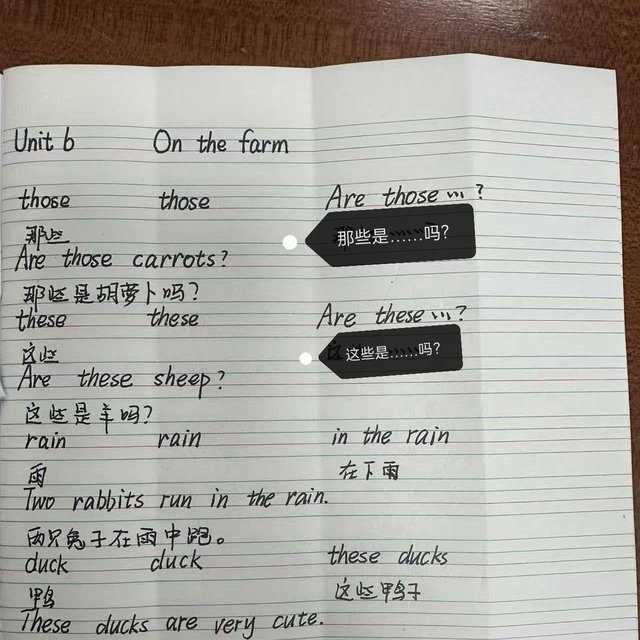 Unit 6 On the farm
those those Are those…?
那些 那些是……吗?
Are those carrots?
那些是胡萝卜吗?
these these Are these…?
这些 这些是……吗?
Are these sheep?
这些是羊吗?
rain rain in the rain
雨 在下雨
Two rabbits run in the rain.
两只兔子在雨中跑。
duck duck these ducks
鸭 这些鸭子
These ducks are very cute.